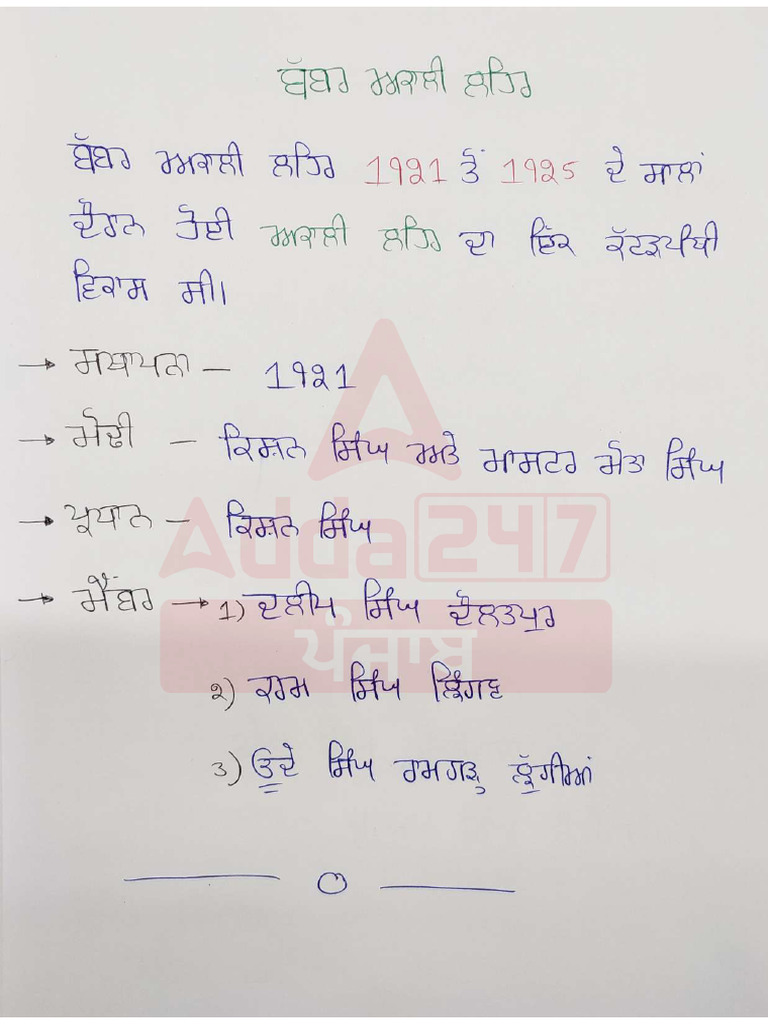 ਬੱਬਰ ਅਕਾਲੀ ਲਹਿਰ
ਬੱਬਰ ਅਕਾਲੀ ਲਹਿਰ 1921 ਤੋਂ 1925 ਦੇ ਸਾਲਾਂ
ਦੌਰਾਨ ਹੋਈ ਅਕਾਲੀ ਲਹਿਰ ਦਾ ਇੱਕ ਕੱਟੜਪੰਥੀ
ਵਿਕਾਸ ਸੀ।
→ ਸਥਾਪਨਾ - 1921
→ ਮੋਢੀ - ਕਿਸ਼ਨ ਸਿੰਘ ਅਤੇ ਮਾਸਟਰ ਮੋਤਾ ਸਿੰਘ
→ ਪ੍ਰਧਾਨ - ਕਿਸ਼ਨ ਸਿੰਘ
Adda247
→ ਮੈਂਬਰ → 1) ਦਲੀਪ ਸਿੰਘ ਦੌਲਤਪੁਰ
ਪੰਜਾਬ
2) ਕਰਮ ਸਿੰਘ ਝਿੰਗਣ
3) ਊਦੇ ਸਿੰਘ ਰਾਮਗੜ੍ਹ ਝੁੱਗੀਆਂ